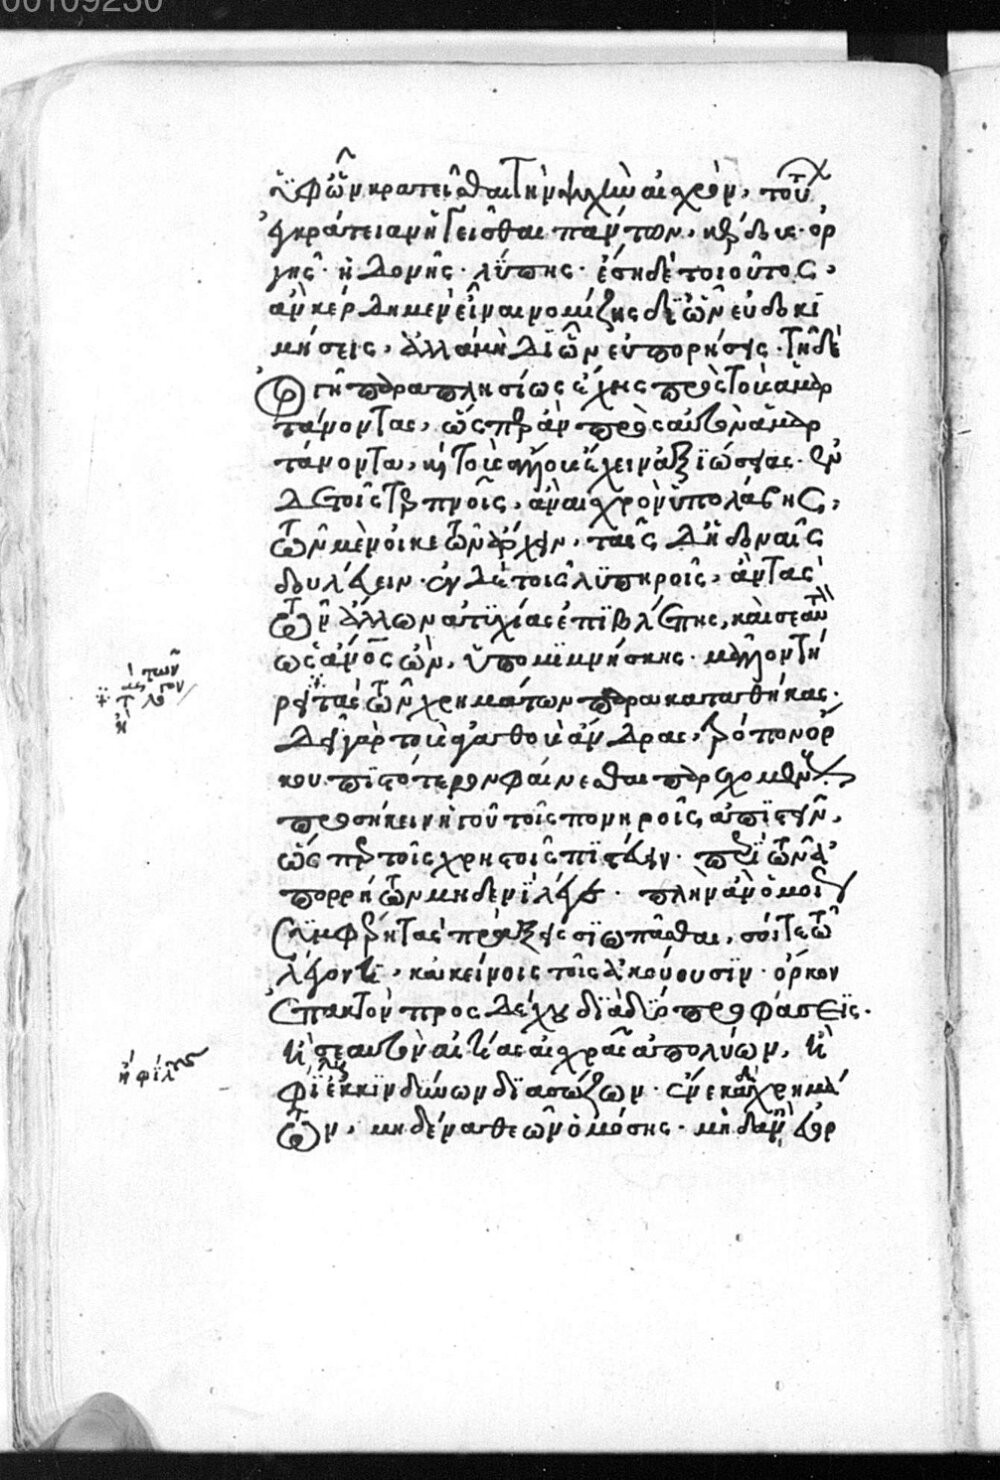 00109230
ὑφ' ὧν κρατεῖσθαι τὴν ψυχὴν αἰσχρὸν, τούτων
ἐγκράτειαν ἥγεῖσθαι πάντων, κέρδους· ὀρ
γῆς· ἡδονῆς· λύπης· ἔση δὲ τοιοῦτος,
ἂν κέρδη μὲν εἶναι νομίζης δι' ὧν εὐδοκι
μήσεις, ἀλλὰ μὴ δι' ὧν εὐπορήσεις· τῇ δὲ
ὀργῇ παραπλησίως ἔχης πρὸς τοὺς ἁμαρ
τάνοντας, ὥσπερ ἂν πρὸς αὐτὸν ἁμαρ
τάνοντα, καὶ τοὺς ἄλλους ἔχειν ἀξιώσειας· ἐν
δὲ τοῖς τερπνοῖς, ἂν αἰσχρὸν ὑπολάβης,
τῶν μὲν οἰκετῶν ἄρχειν, ταῖς δ' ἡδοναῖς
δουλεύειν· ἐν δὲ τοῖς λυπηροῖς, ἂν τὰς
τῶν ἄλλων ἀτυχίας ἐπιβλέπης, καὶ σεαυτὸν
ὡς ἄνος ὢν, ὑπομιμνήσκης· μᾶλλον τή
ρει τὰς τῶν χρημάτων παρακαταθήκας·
δεῖ γὰρ τοὺς ἀγαθοὺς ἄνδρας, τρόπον ὅρ
κου πιστότερον φαίνεσθαι παρεχομένους·
προσήκειν ἡγοῦ τοῖς πονηροῖς ἀπιστεῖν,
ὥσπερ τοῖς χρηστοῖς πιστεύειν· περὶ τῶν ἀ
πορρήτων μηδενὶ λέγε· πλὴν ἂν ὁμοίως
συμφέρη τὰς πράξεις σιωπᾶσθαι, σοί τε τῷ
λέγοντι, κἀκείνοις τοῖς ἀκούουσιν· ὅρκον
ἐπακτὸν προσδέχου διὰ δύο προφάσεις·
ἢ σεαυτὸν αἰτίας αἰσχρᾶς ἀπολύων, ἢ
φίλους ἐκ κινδύνων διασώζων· ἕνεκα δὲ χρημά
των, μηδένα θεῶν ὀμόσης· μὴ δ' ἂν εὐορ